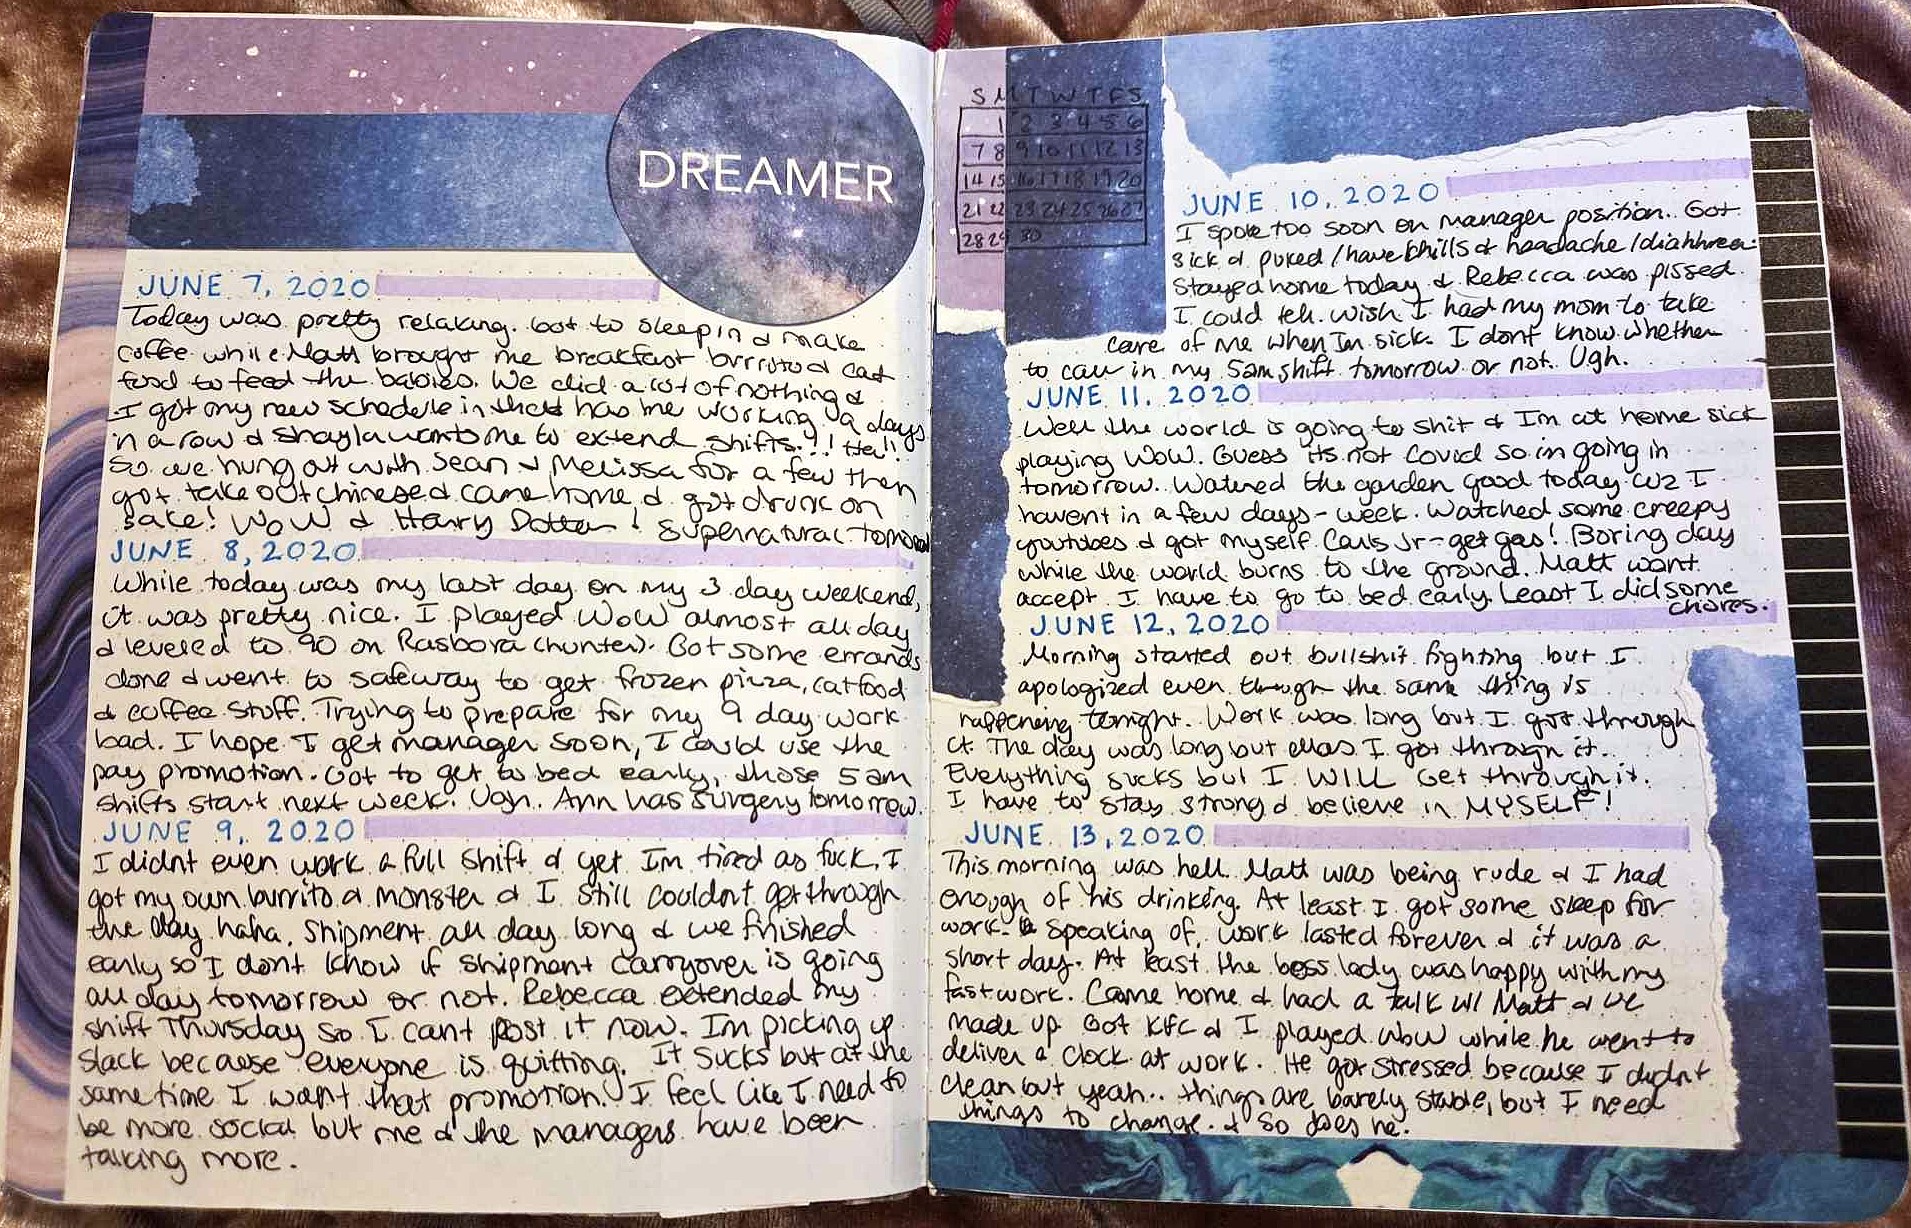 DREAMER
JUNE 7, 2020
Today was pretty relaxing. Got to sleep in & make
coffee while Matt brought me breakfast burrito & cat
food to feed the babies. We did a lot of nothing &
I got my new schedule in that has me working 9 days
in a row & Shayla wants me to extend shifts?!! Hell
So we hung out with Sean & Melissa for a few then
got take out chinese & came home & got drunk on
sake! WoW & Harry Potter! Supernatural tomorrow
JUNE 8, 2020
While today was my last day on my 3 day weekend,
it was pretty nice. I played WoW almost all day
& leveled to 90 on Rasbora (hunter). Got some errands
done & went to safeway to get frozen pizza, cat food
& coffee stuff. Trying to prepare for my 9 day work
bad. I hope I get manager soon, I could use the
pay promotion. Got to get to bed early, those 5am
shifts start next week. Ugh. Ann has surgery tomorrow.
JUNE 9, 2020
I didnt even work a full shift & yet Im tired as fuck, I
got my own burrito & monster & I still couldnt get through
the day haha. Shipment all day long & we finished
early so I dont know if shipment carryover is going
all day tomorrow or not. Rebecca extended my
shift Thursday so I cant post it now. Im picking up
slack because everyone is quitting. It sucks but at the
same time I want that promotion. I feel like I need to
be more social but me & the managers have been
talking more.
S M T W T F S
1 2 3 4 5 6
7 8 9 10 11 12 13
14 15 16 17 18 19 20
21 22 23 24 25 26 27
28 29 30
JUNE 10, 2020
I spoke too soon on manager position. Got
sick & puked / have chills & headache / diahhrea.
Stayed home today & Rebecca was pissed
I could tell. Wish I had my mom to take
care of me when Im sick. I dont know whether
to call in my 5am shift tomorrow or not. Ugh.
JUNE 11, 2020
Well the world is going to shit & Im at home sick
playing WoW. Guess its not Covid so im going in
tomorrow. Watered the garden good today cuz I
havent in a few days - week. Watched some creepy
youtubes & got myself Carls Jr - get gas! Boring day
while the world burns to the ground. Matt want
accept I have to go to bed early. Least I did some
chores.
JUNE 12, 2020
Morning started out bullshit fighting but I
apologized even though the same thing is
happening tonight. Work was long but I got through
it. The day was long but alas I got through it..
Everything sucks but I WILL Get through it.
I have to stay strong & believe in MYSELF!
JUNE 13, 2020
This morning was hell. Matt was being rude & I had
enough of his drinking. At least I got some sleep for
work. Speaking of, work lasted forever & it was a
short day. At least the boss lady was happy with my
fast work. Came home & had a talk w/ Matt & we
made up. Got KFC & I played WoW while he went to
deliver a clock at work. He got stressed because I didnt
clean but yeah.. things are barely stable, but I need
things to change. & So does he.